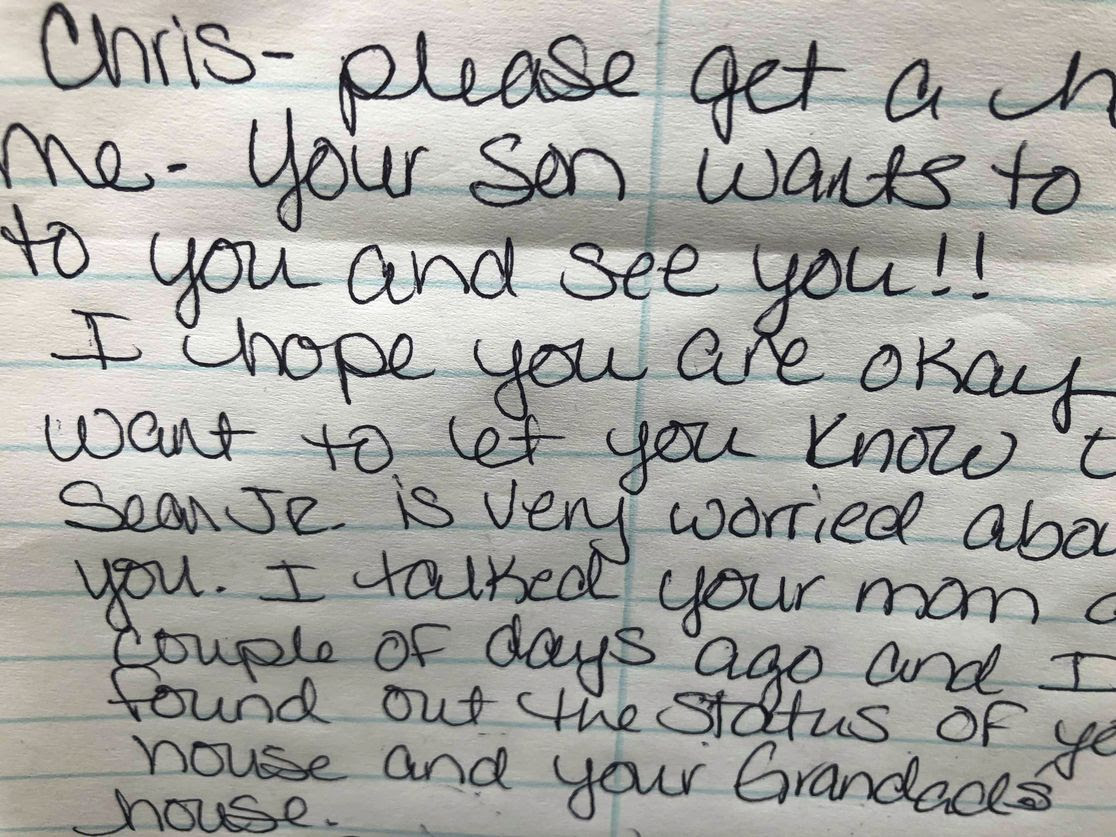 Chris- please get a h
me- Your Son wants to
to you and see you!!
I hope you are okay
want to let you know t
Sean JR. is very worried abo
you. I talked your mom a
couple of days ago and I
found out the status of yo
house and your Grandads
house.